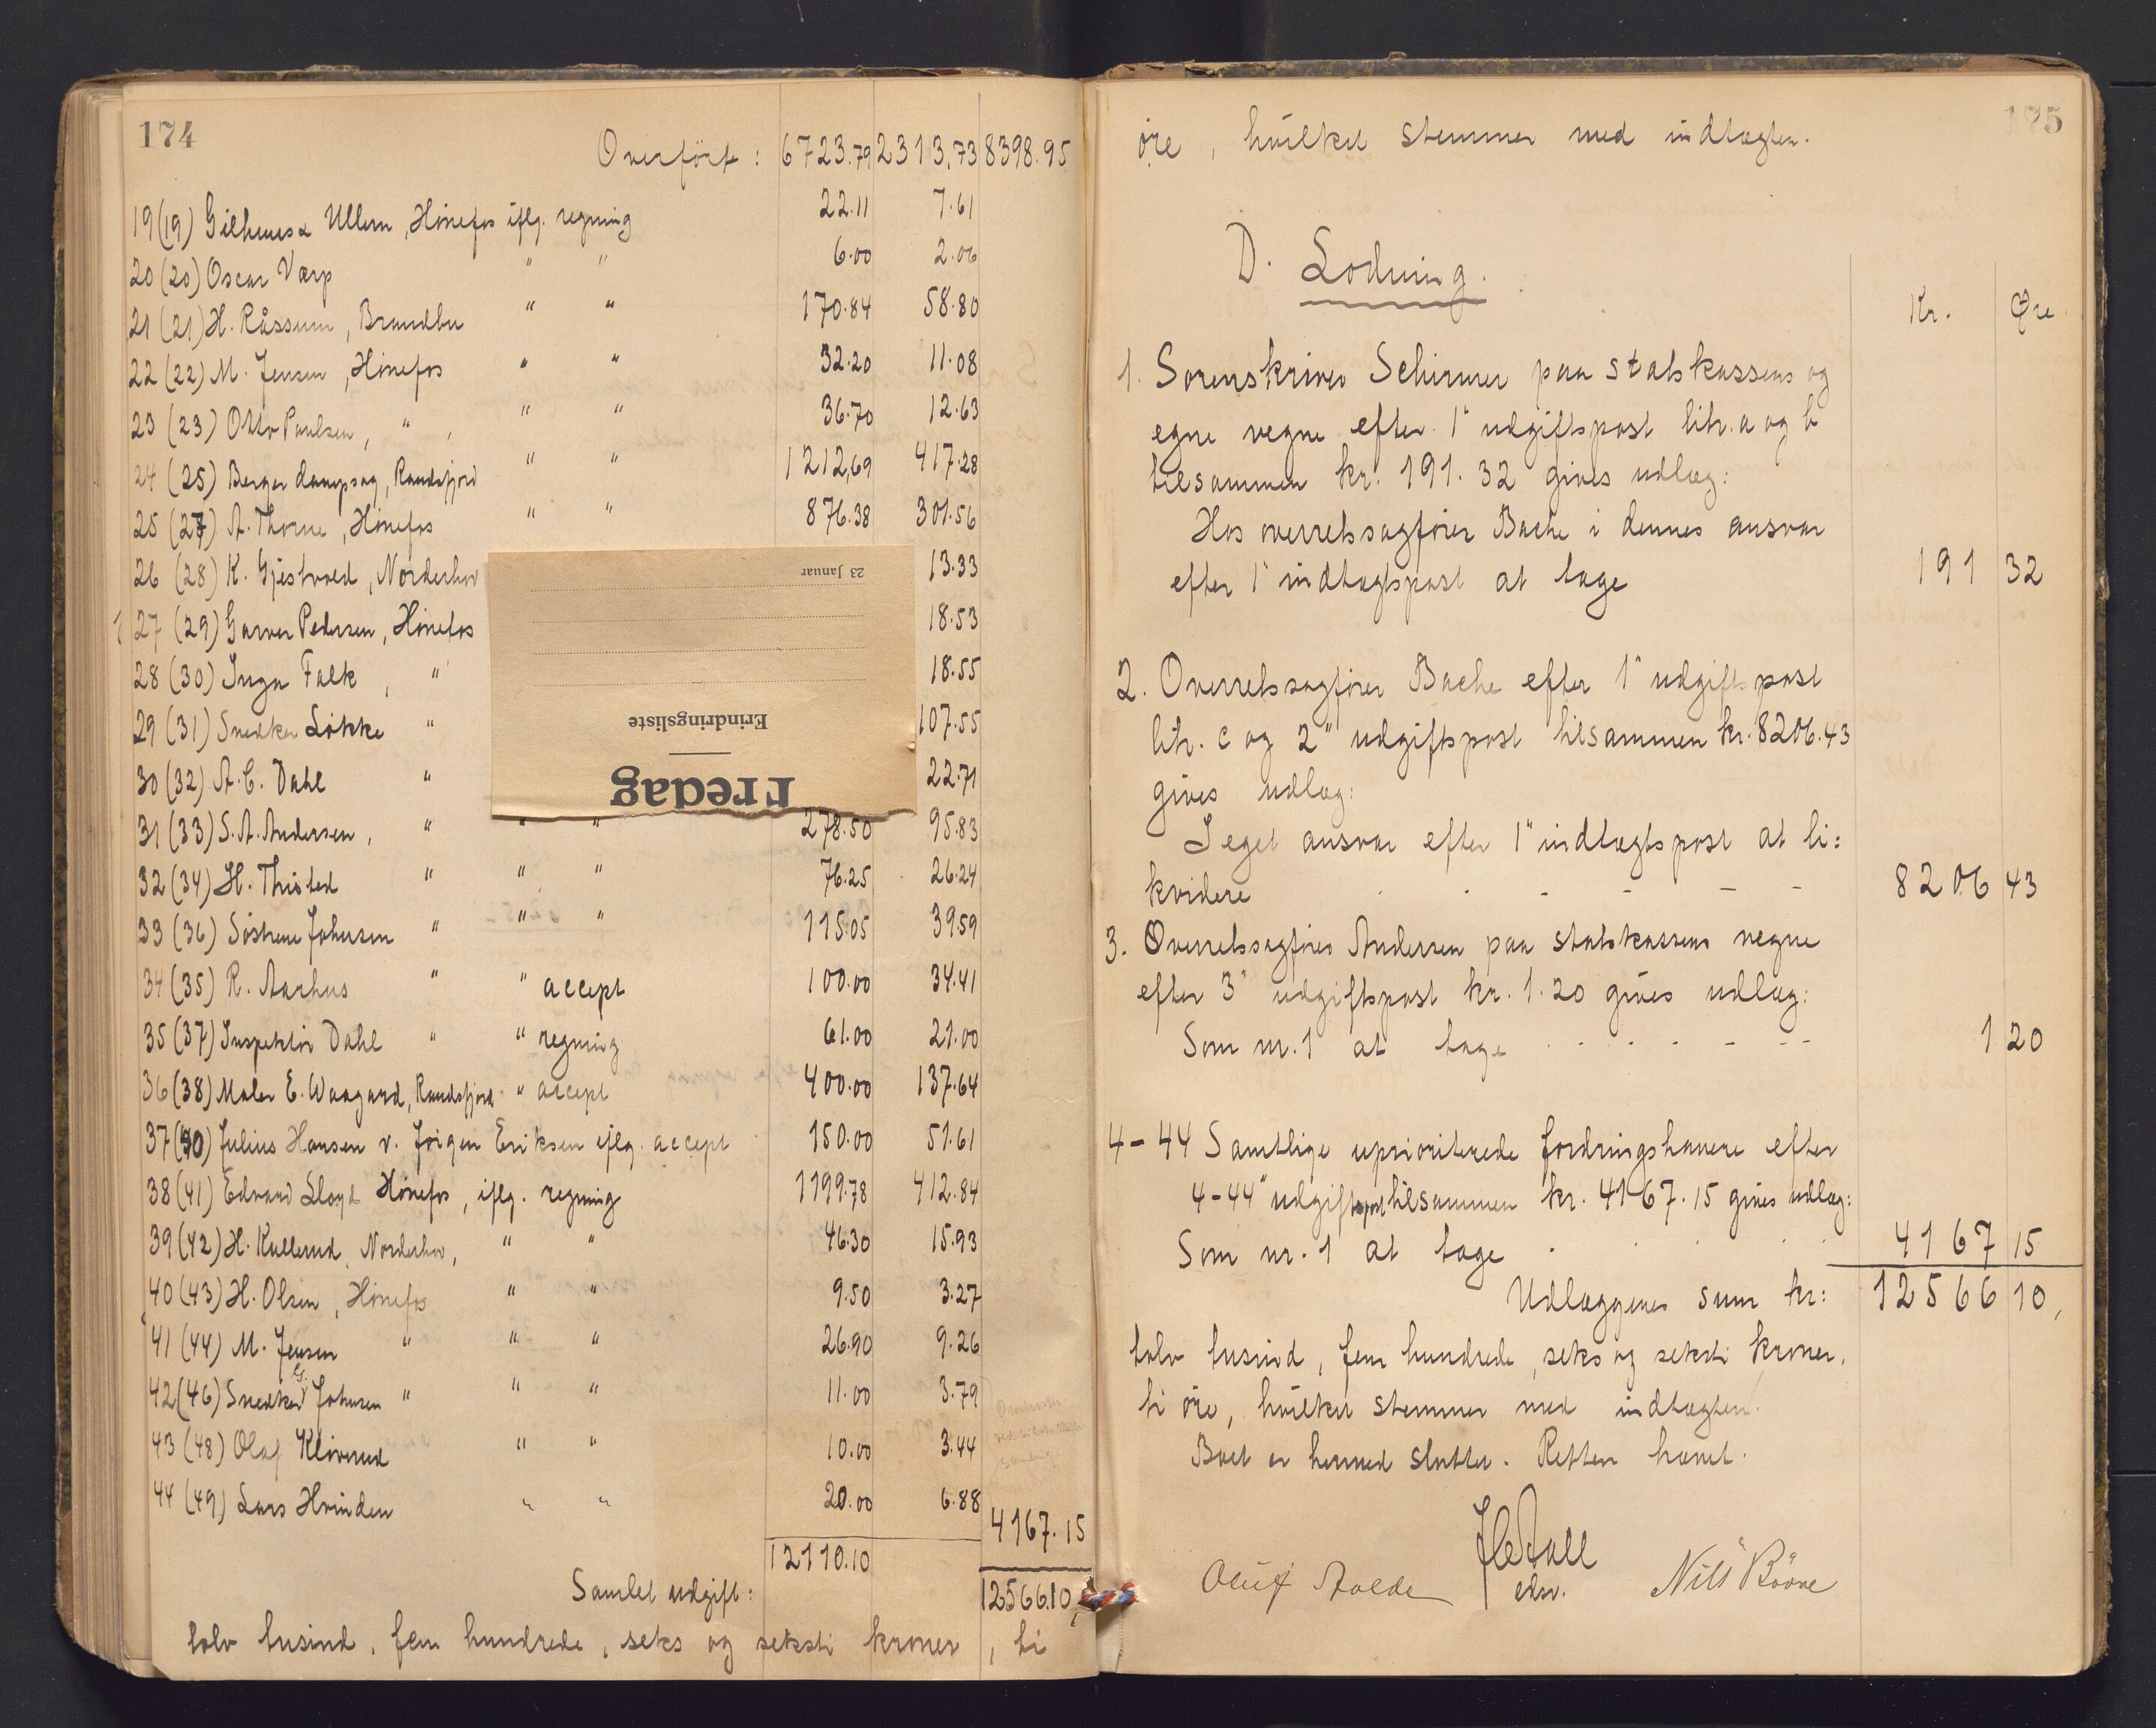 174
Overført : 6723.79 2313,73 8398.95
19 (19) Gilhuus & Ullern, Hønefos iflg. regning 22.11 7.61
20 (20) Oscar Værp " " 6.00 2.06
21 (21) H. Råssum, Brandbu " " 170.84 58.80
22 (22) M. Jensen, Hønefos " " 32.20 11.08
23 (23) Otto Paulsen, " , " " 36.70 12.63
24 (25) Berger dampsag, Randsfjord " " 1212,69 417.28
25 (27) A. Thorne, Hønefos " " 876.38 301.56
26 (28) K. Gjestvold, Norderhov 13.33
27 (29) Garver Pedersen, Hønefos 18.53
28 (30) Inga Falk , " 18.55
29 (31) Snedker Løkke " 107.55
30 (32) A. C. Dahl " 22.71
31 (33) S. A. Andersen, " " " 278.50 95.83
32 (34) H. Thisted " " " 76.25 26.24
33 (36) Søstrene Johnsen " " " 115.05 39.59
34 (35) R. Aarhus " " accept 100.00 34.41
35 (37) Inspektør Dahl " " regning 61.00 21.00
36 (38) Maler E. Waagaard, Randsfjord " accept 400.00 137.64
37 (40) Julius Hansen v. Jørgen Eriksen iflg. accept 150.00 51.61
38 (41) Edvard Lloyd Hønefos, iflg. regning 1199.78 412.84
39 (42) H. Kullerud, Norderhov, " " 46.30 15.93
40 (43) H. Olsen, Hønefos " " 9.50 3.27
41 (44) M. Jensen " " " 26.90 9.26
42 (46) Snedker G. Johnsen " " " 11.00 3.79
43 (48) Olaf Kløvrud " " 10.00 3.44
44 (49) Lars Hvinden " " 20.00 6.88
4167.15
12110.10
Samlet udgift: 12566.10,
tolv tusind, fem hundrede, seks og seksti kroner, ti
23 Januar
Erindringsliste
Fredag
175
øre, hvilket stemmer med indtægten.
D. Lodning.
Kr. Øre
1. Sorenskriver Schirmer paa statskassens og
egne vegne efter 1" udgiftspost litr. a og b
tilsammen kr. 191.32 gives udlæg:
Hos overretssagfører Bache i dennes ansvar
efter 1" indtægtspost at tage 191 32
2. Overretssagfører Bache efter 1" udgiftspost
litr. c og 2" udgiftspost tilsammen kr. 8206.43
gives udlæg:
I eget ansvar efter 1" indtægtspost at li=
kvidere . . - - - - 8206 43
3. Overretssagfører Andersen paa statskassens vegne
efter 3" udgiftspost kr. 1.20 gives udlæg:
Som nr. 1 at tage . . . . - - - 1 20
4-44 Samtlige uprioriterede fordringshavere efter
4-44" udgiftspost tilsammen kr. 4167.15 gives udlæg:
Som nr. 1 at tage . . . . 4167 15
Udlæggenes sum kr: 12566 10,
tolv tusind, fem hundrede, seks og seksti kroner,
ti øre, hvilket stemmer med indtægten.
Boet er hermed sluttet. Retten hævet.
edsv.
Oluf Aalde Nils Bøvre